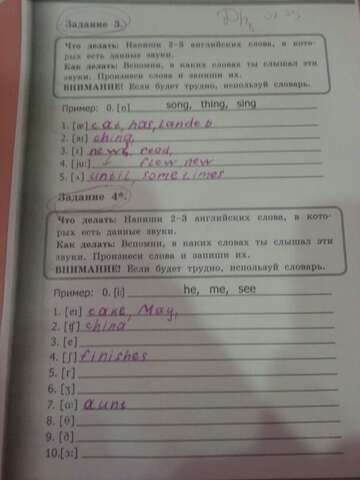 Задание 3.
Что делать: Напиши 2–3 английских слова, в кото-
рых есть данные звуки.
Как делать: Вспомни, в каких словах ты слышал эти
звуки. Произнеси слова и запиши их.
ВНИМАНИЕ! Если будет трудно, используй словарь.
Пример: 0. [ŋ] song, thing, sing
1. [æ] cat, has, landed
2. [aɪ] china,
3. [ɪ] read,
4. [ju:] flew new
5. [ʌ] until, sometimes
Задание 4*.
Что делать: Напиши 2–3 английских слова, в кото-
рых есть данные звуки.
Как делать: Вспомни, в каких словах ты слышал эти
звуки. Произнеси слова и запиши их.
ВНИМАНИЕ! Если будет трудно, используй словарь.
Пример: 0. [i:] he, me, see
1. [eɪ] cake, May,
2. [ʧ] china
3. [e]
4. [ʃ] finishes
5. [r]
6. [ʒ]
7. [ɑ:] aunt
8. [θ]
9. [ð]
10. [ɔ:]